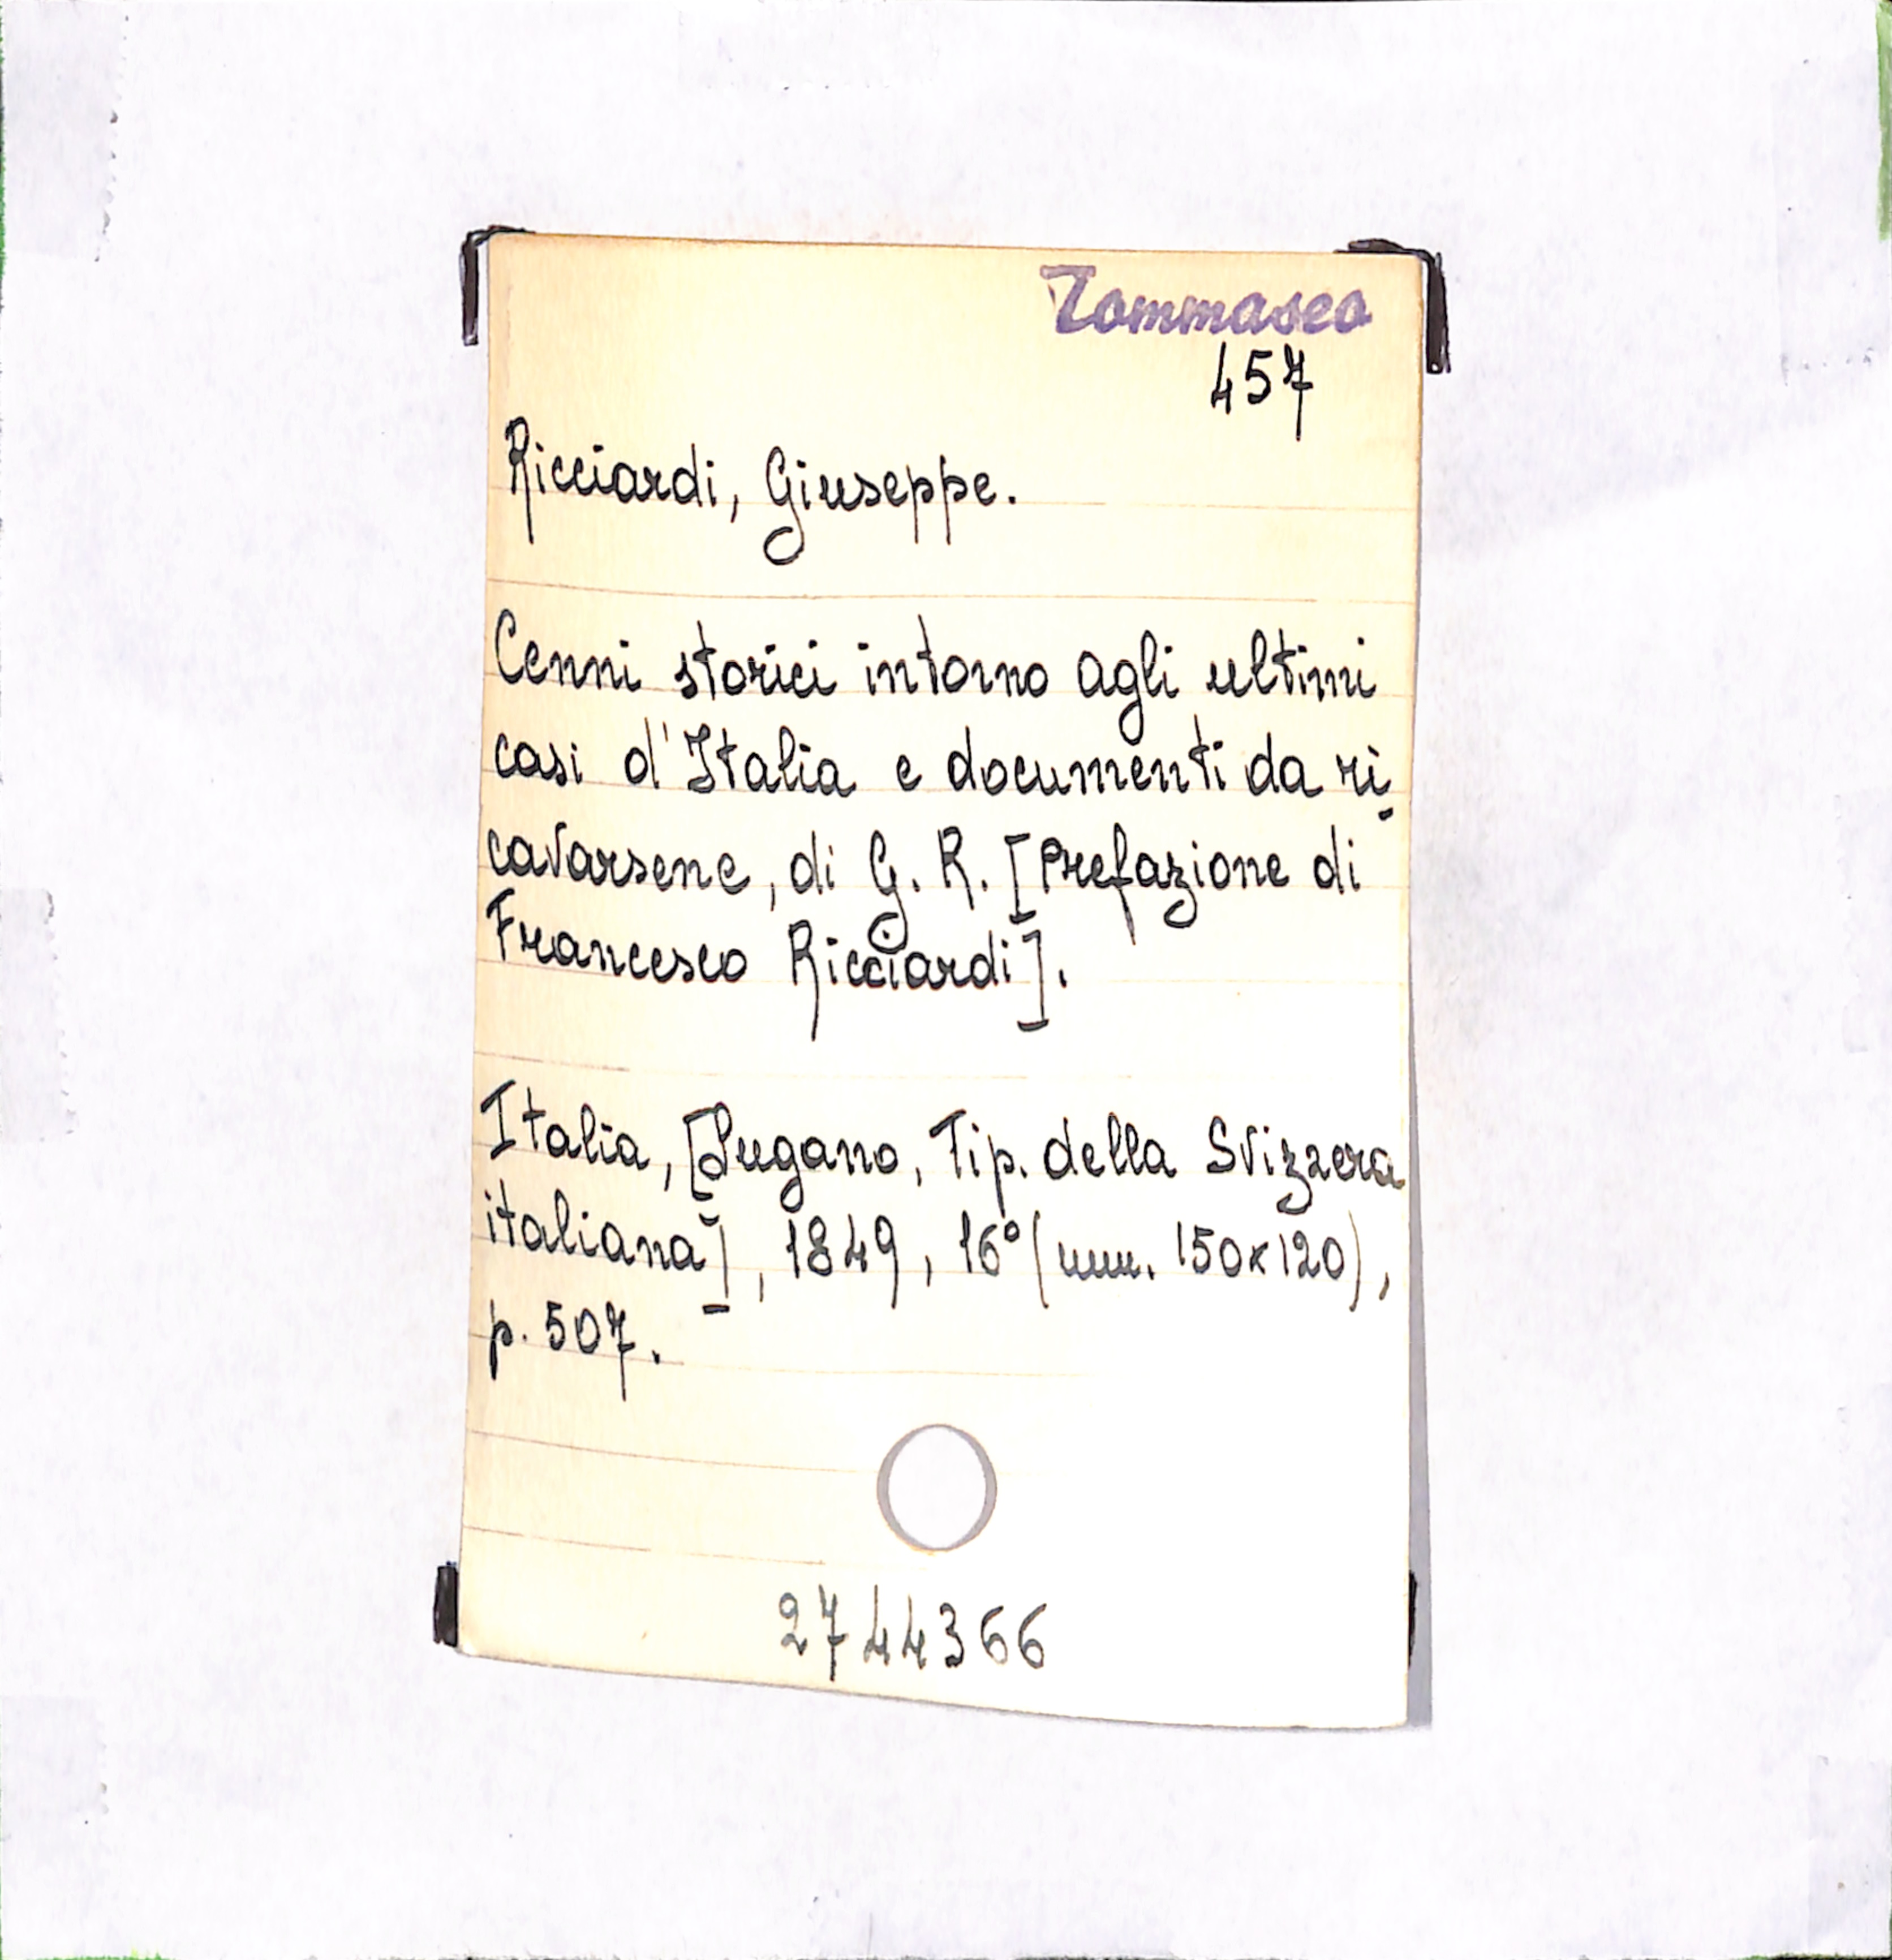 Tommaseo
457
Ricciardi, Giuseppe.
Cenni storici intorno agli ultimi
casi d'Italia e documenti da ri-
cavarsene, di G. R. [Prefazione di
Francesco Ricciardi].
Italia, [Lugano, Tip. della Svizzera
italiana], 1849, 16° (mm. 150x120),
p. 507.
2744366